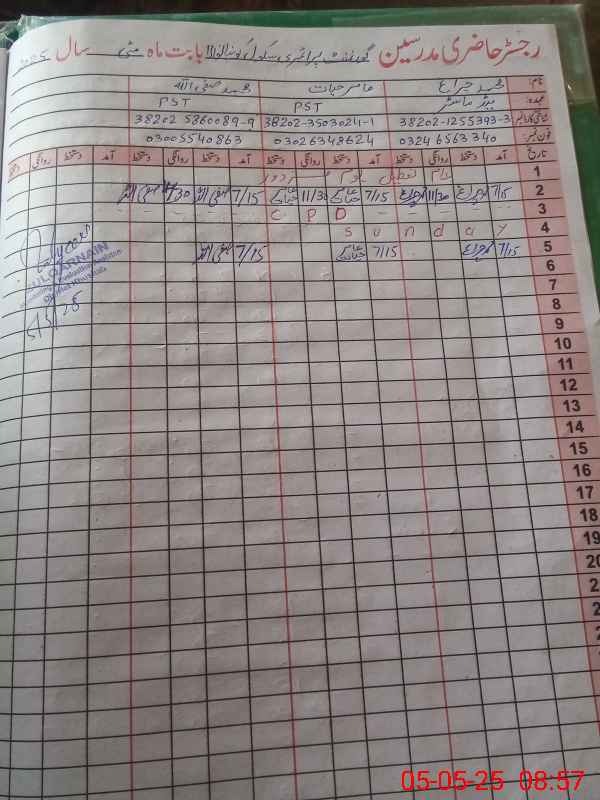 رجسٹر حاضری مدرسین گورنمنٹ پرائمری سکول بابت ماہ مئی سال 2025
نام: محمد چراغ عامر حیات محمد صفی اللہ
عہدہ: ہیڈ ماسٹر PST PST
شناختی کارڈ نمبر 38202-1255393-3 38202-3503024-1 38202 5860089-9
فون نمبر: 0324 6563340 03026348624 03005540863
تاریخ آمد دستخط روانگی دستخط آمد دستخط روانگی دستخط آمد دستخط روانگی دستخط آمد دستخط روانگی دستخط
1 عام تعطیل یوم مزدور
2 7/15 11/30 7/15 11/30 7/15 11/30
3 C P D
4 S u n d a y
5 7/15 7/15 7/15
6
7
8
9
10
11
12
13
14
15
16
17
18
19
20
2
2
2
ZULQARNAIN
5/5/25
05-05-25 08:57